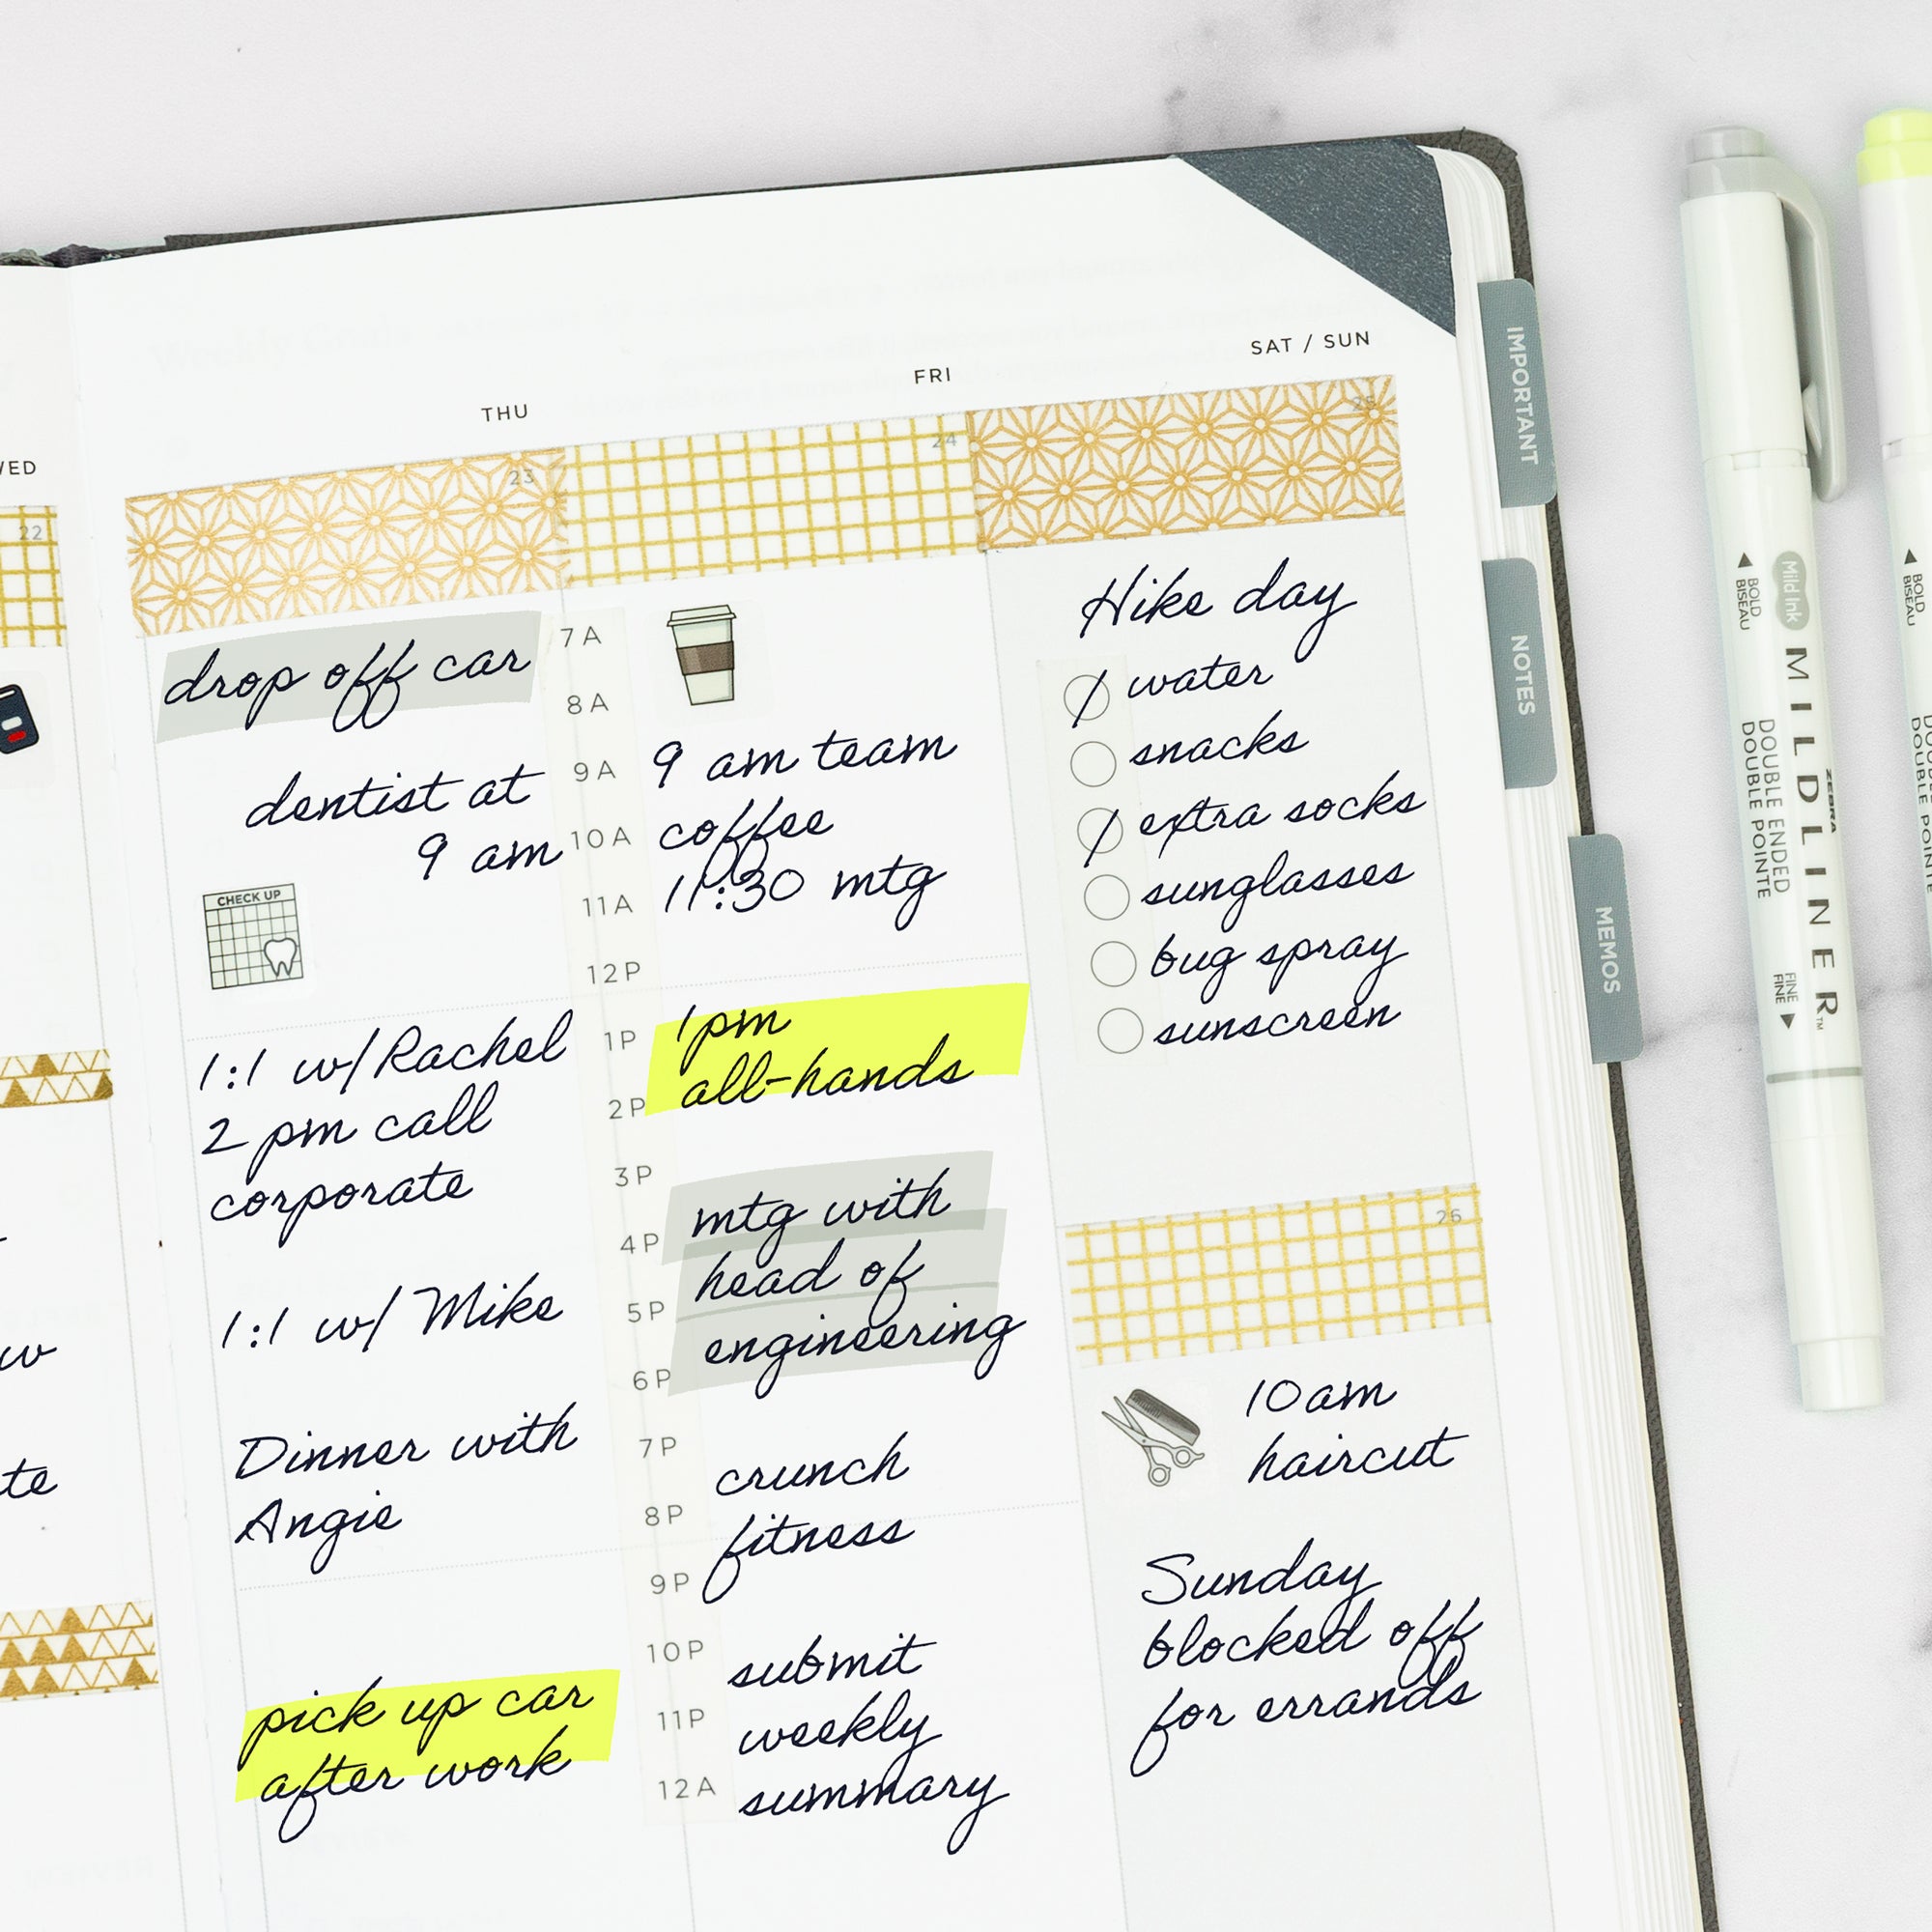 THU
FRI
SAT / SUN
22
23
24
25
drop off car
dentist at
9 am
CHECK UP
1:1 w/ Rachel
2 pm call
corporate
1:1 w/ Mike
Dinner with
Angie
pick up car
after work
7 A
8 A
9 A
10 A
11 A
12 P
1 P
2 P
3 P
4 P
5 P
6 P
7 P
8 P
9 P
10 P
11 P
12 A
9 am team
coffee
11:30 mtg
1pm
all-hands
mtg with
head of
engineering
crunch
fitness
submit
weekly
summary
Hike day
water
snacks
extra socks
sunglasses
bug spray
sunscreen
26
10am
haircut
Sunday
blocked off
for errands
IMPORTANT
NOTES
MEMOS
BOLD
BISEAU
Mild Ink
ZEBRA
MILDLINER™
DOUBLE ENDED
DOUBLE POINTE
FINE
FINE
BOLD
BISEAU